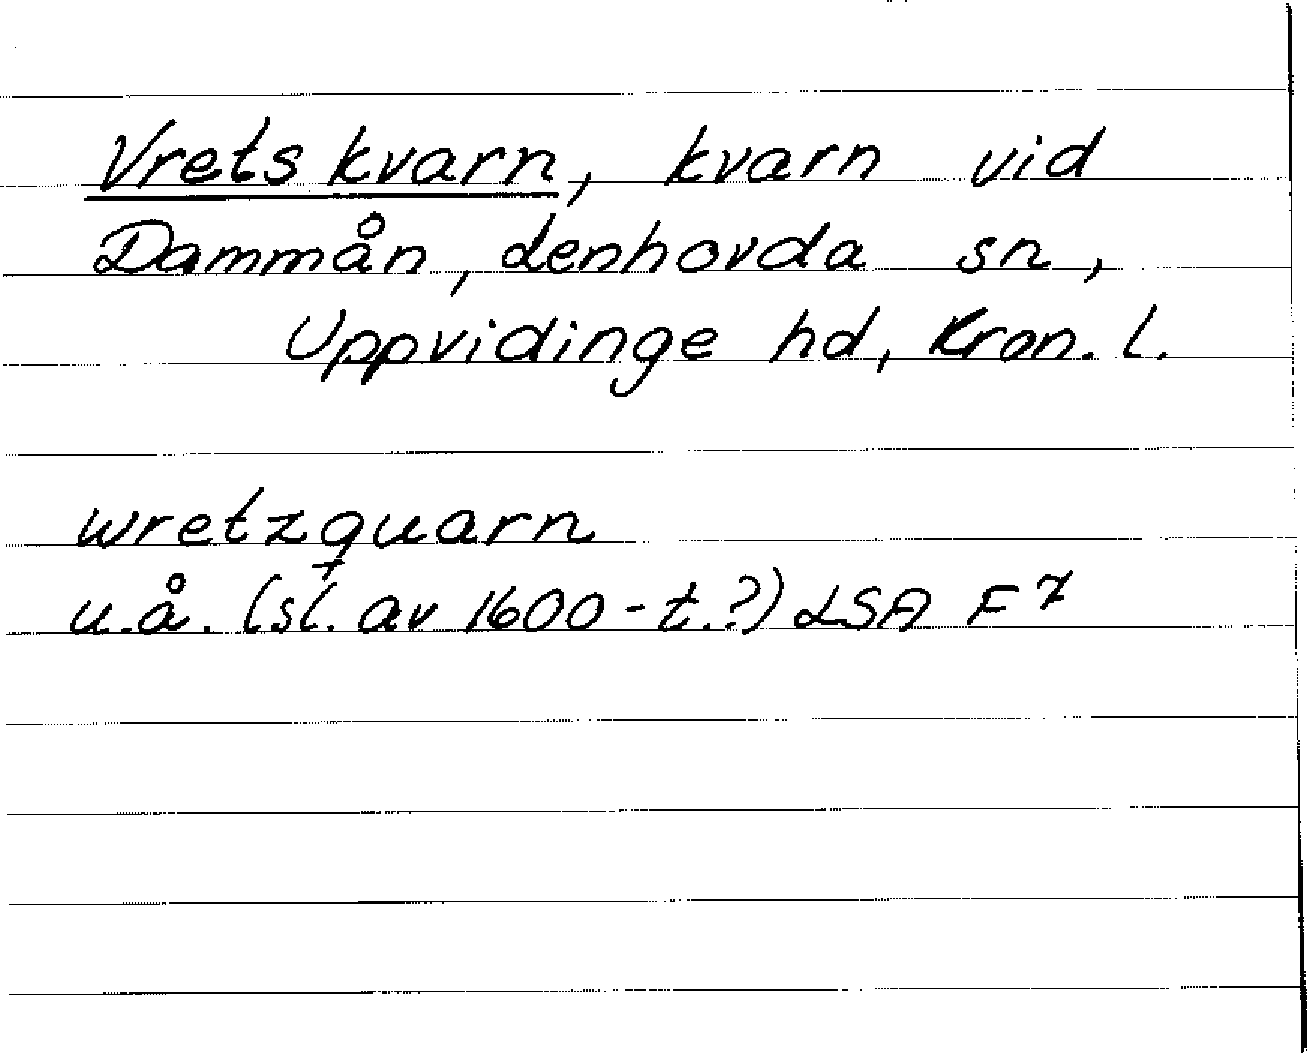 Vrets kvarn, kvarn vid
Dammån, Lenhovda sn,
Uppvidinge hd, Kron. l.
wretzquarn
u.å. (sl. av 1600-t.?) LSA F7